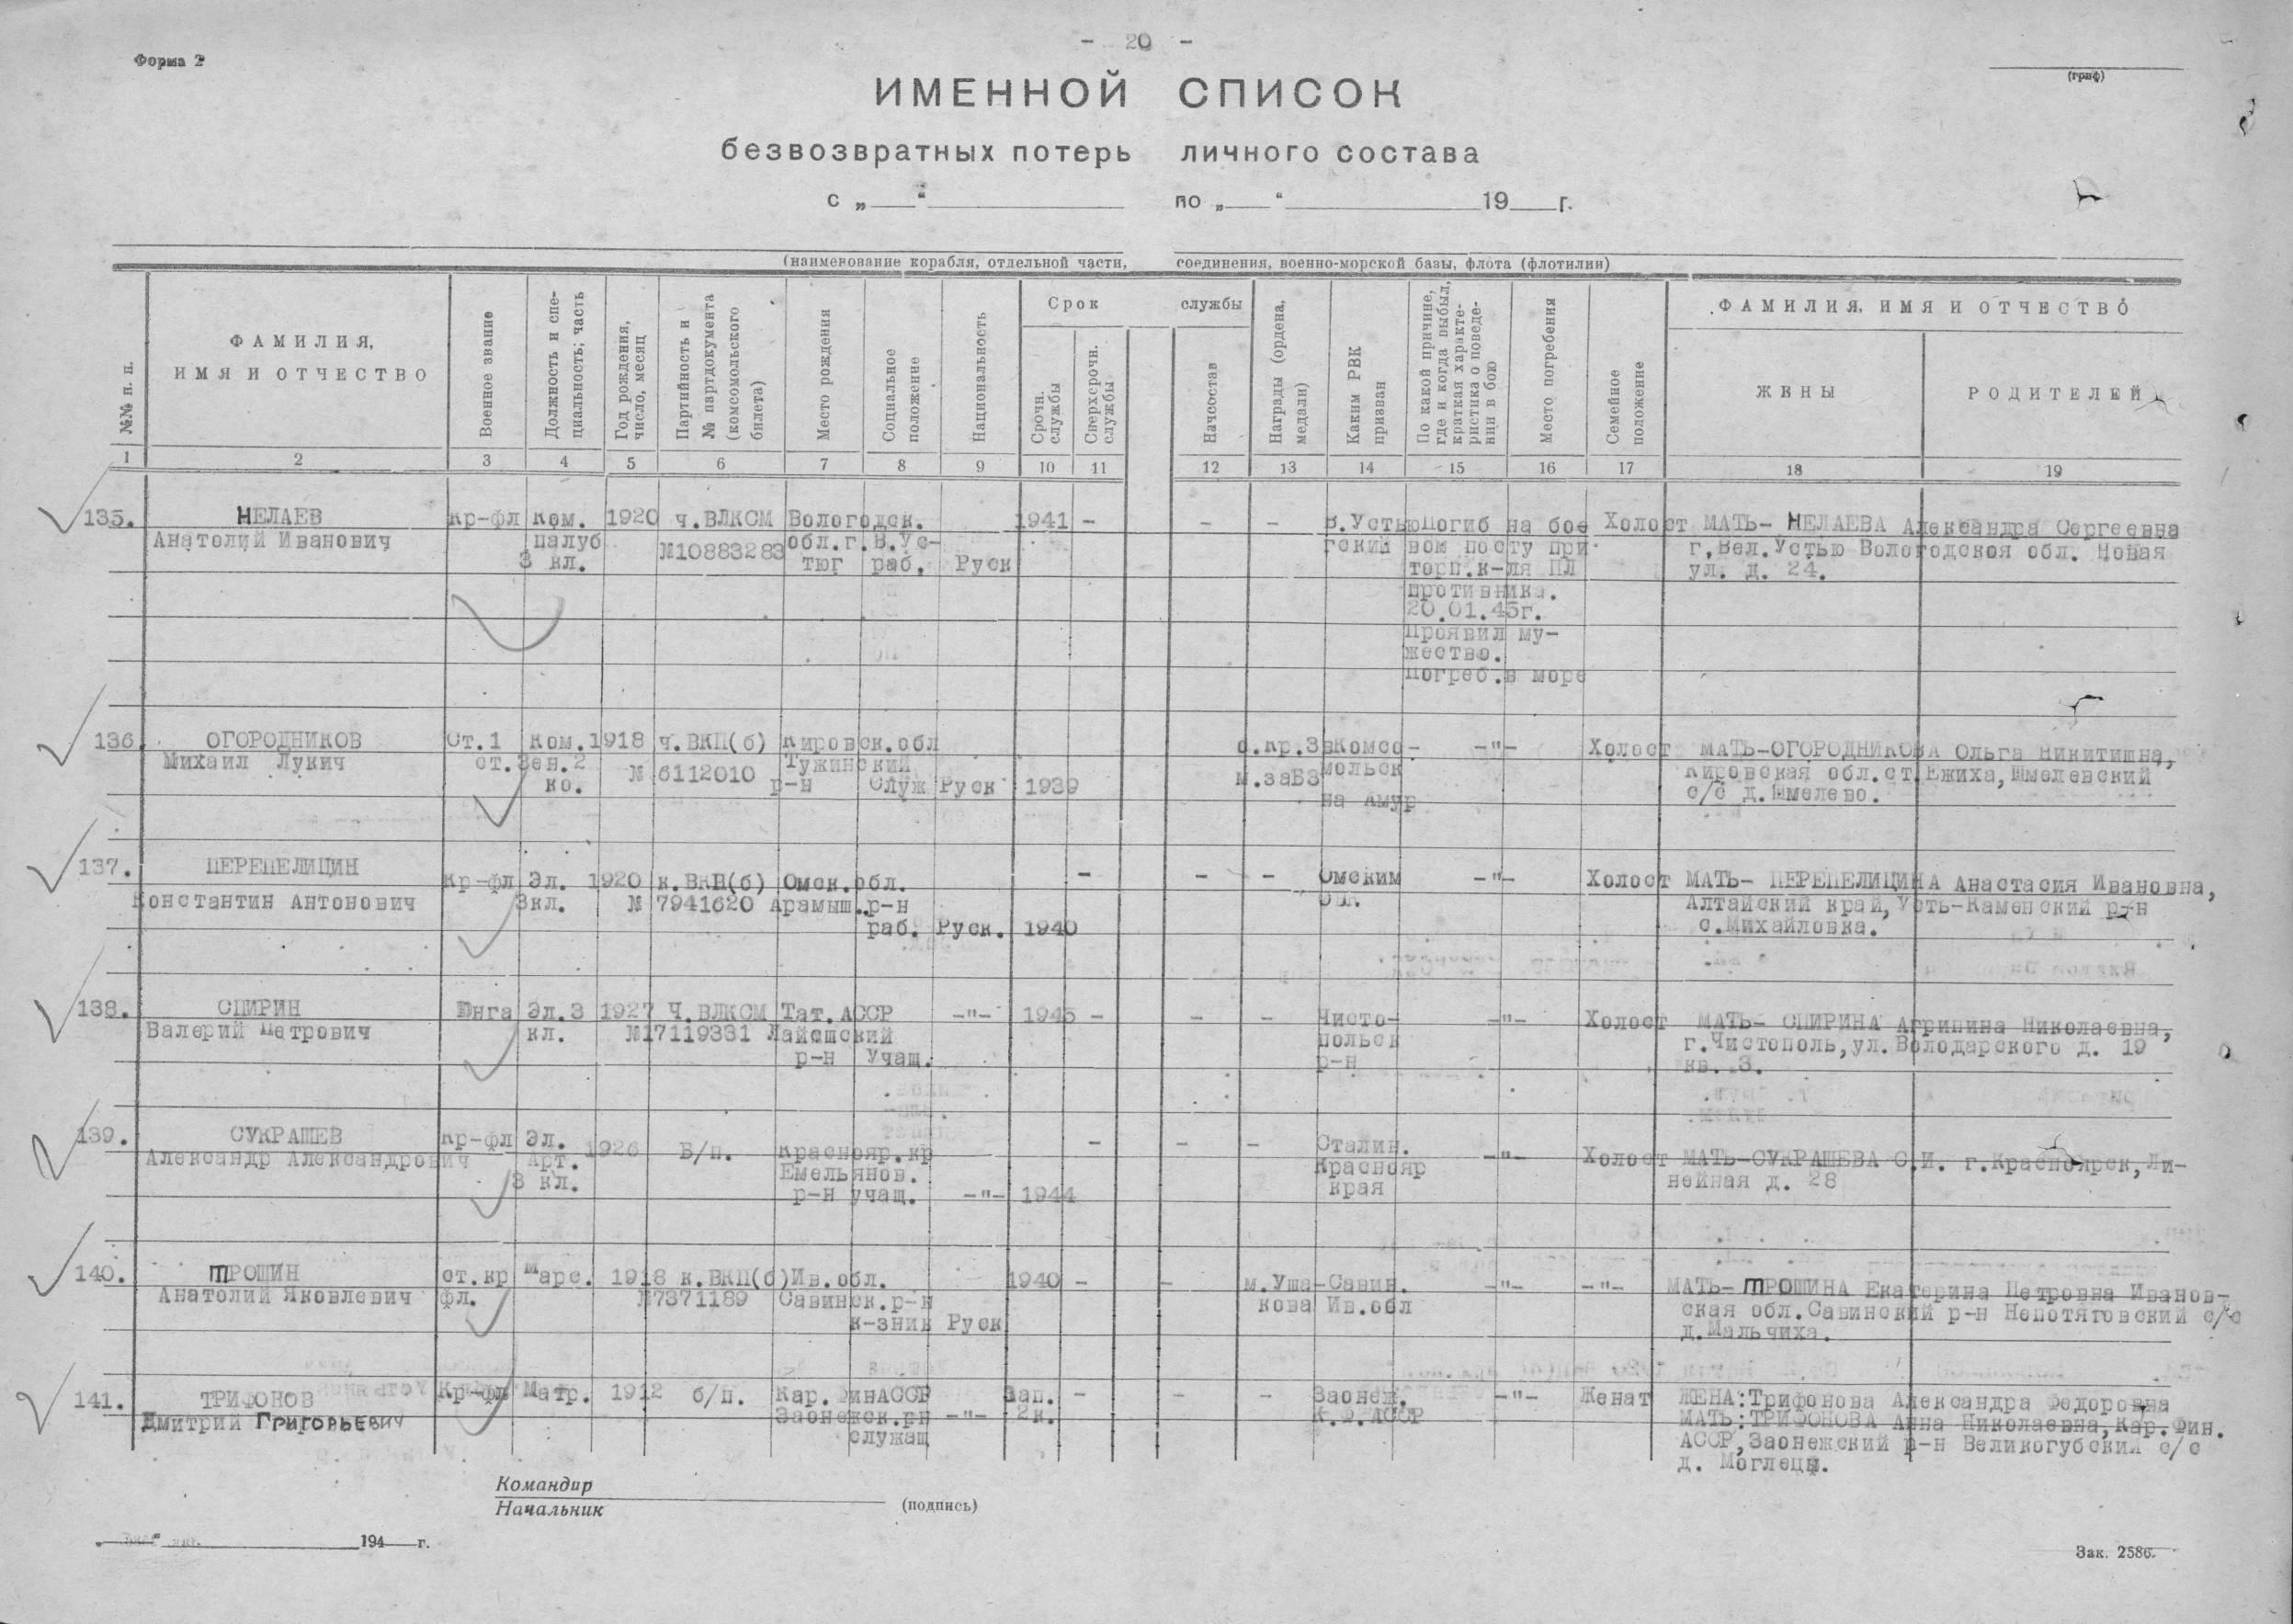 - 20 -
Форма 2
(гриф)
ИМЕННОЙ СПИСОК
безвозвратных потерь личного состава
с „ “ по „ “ 19 г.
(наименование корабля, отдельной части, соединения, военно-морской базы, флота (флотилии)
№№ п. п.
ФАМИЛИЯ, ИМЯ И ОТЧЕСТВО
Военное звание
Должность и специальность; часть
Год рождения, число, месяц
Партийность и № партдокумента (комсомольского билета)
Место рождения
Социальное положение
Национальность
Срок службы
Срочн. службы
Сверхсрочн. службы
Начсостав
Награды (ордена, медали)
Каким РВК призван
По какой причине, где и когда выбыл, краткая характеристика о поведении в бою
Место погребения
Семейное положение
ФАМИЛИЯ, ИМЯ И ОТЧЕСТВО
ЖЕНЫ
РОДИТЕЛЕЙ
1 2 3 4 5 6 7 8 9 10 11 12 13 14 15 16 17 18 19
135. НЕЛАЕВ кр-фл ком. 1920 ч.ВЛКСМ Вологодск. 1941 - - - В.Устью Погиб на бое Холост МАТЬ- НЕЛАЕВА Александра Сергеевна
Анатолий Иванович палуб №10883283 обл.г.В.Ус- гский вом посту при г.Вел.Устью Вологодская обл. Новая
3 кл. тюг раб. Руск торп.к-ля ПЛ ул. д. 24.
противника.
20.01.45г.
Проявил му-
жество.
Погреб.в море
136. ОГОРОДНИКОВ Ст.1 Ком. 1918 ч.ВКП(б) Кировск.обл о.Кр.Зв Комсо- -"- Холост МАТЬ-ОГОРОДНИКОВА Ольга Никитишна,
Михаил Лукич ст. Зен.2 № 6112010 Тужинский м.заБЗ мольск Кировская обл.ст.Ежиха, Шмелевский
ко. р-н Служ Руск 1939 на Амур с/с д.Шмелево.
137. ПЕРЕПЕЛИЦИН Кр-фл Эл. 1920 к.ВКП(б) Омск.обл. - - - Омским -"- Холост МАТЬ- ПЕРЕПЕЛИЦИНА Анастасия Ивановна,
Константин Антонович 3кл. № 7941620 Арамыш.р-н Алтайский край, Усть-Каменский р-н
раб. Руск. 1940 с.Михайловка.
138. СПИРИН Юнга Эл.3 1927 Ч.ВЛКСМ Тат.АССР -"- 1943 - - - Чисто- -"- Холост МАТЬ- СПИРИНА Агрипина Николаевна,
Валерий Петрович кл. №17119331 Лайешский польск г.Чистополь, ул.Володарского д. 19
р-н Учащ. р-н кв. 3.
139. СУКРАШЕВ Кр-фл Эл. 1926 Б/п. Краснояр.кр - - - Сталин. -"- Холост МАТЬ-СУКРАШЕВА С.И. г.Красноярск, Ли-
Александр Александрович Арт. Емельянов. Краснояр нейная д. 28
3 кл. р-н учащ. -"- 1944 края
140. ТРОШИН ст.кр Марс. 1918 к.ВКП(б) Ив.обл. 1940 - - м.Уша- Савин. -"- -"- МАТЬ- ТРОШИНА Екатерина Петровна Иванов-
Анатолий Яковлевич фл. №7371189 Савинск.р-н кова Ив.обл ская обл.Савинский р-н Непотяговский с/с
к-зник Руск д.Мальчиха.
141. ТРИФОНОВ Кр-фл Матр. 1912 б/п. Кар. ФинАССР Зап. - - - Заонеж. -"- Женат ЖЕНА:Трифонова Александра Федоровна
Дмитрий ГРИГОРЬЕВИЧ Заонежск.рн -"- 2к. К.Ф.АССР МАТЬ:ТРИФОНОВА Анна Николаевна, Кар.Фин.
служащ АССР, Заонежский р-н Великогубский с/с
д. Моглецы.
Командир
Начальник (подпись)
194 г.
Зак. 2586.